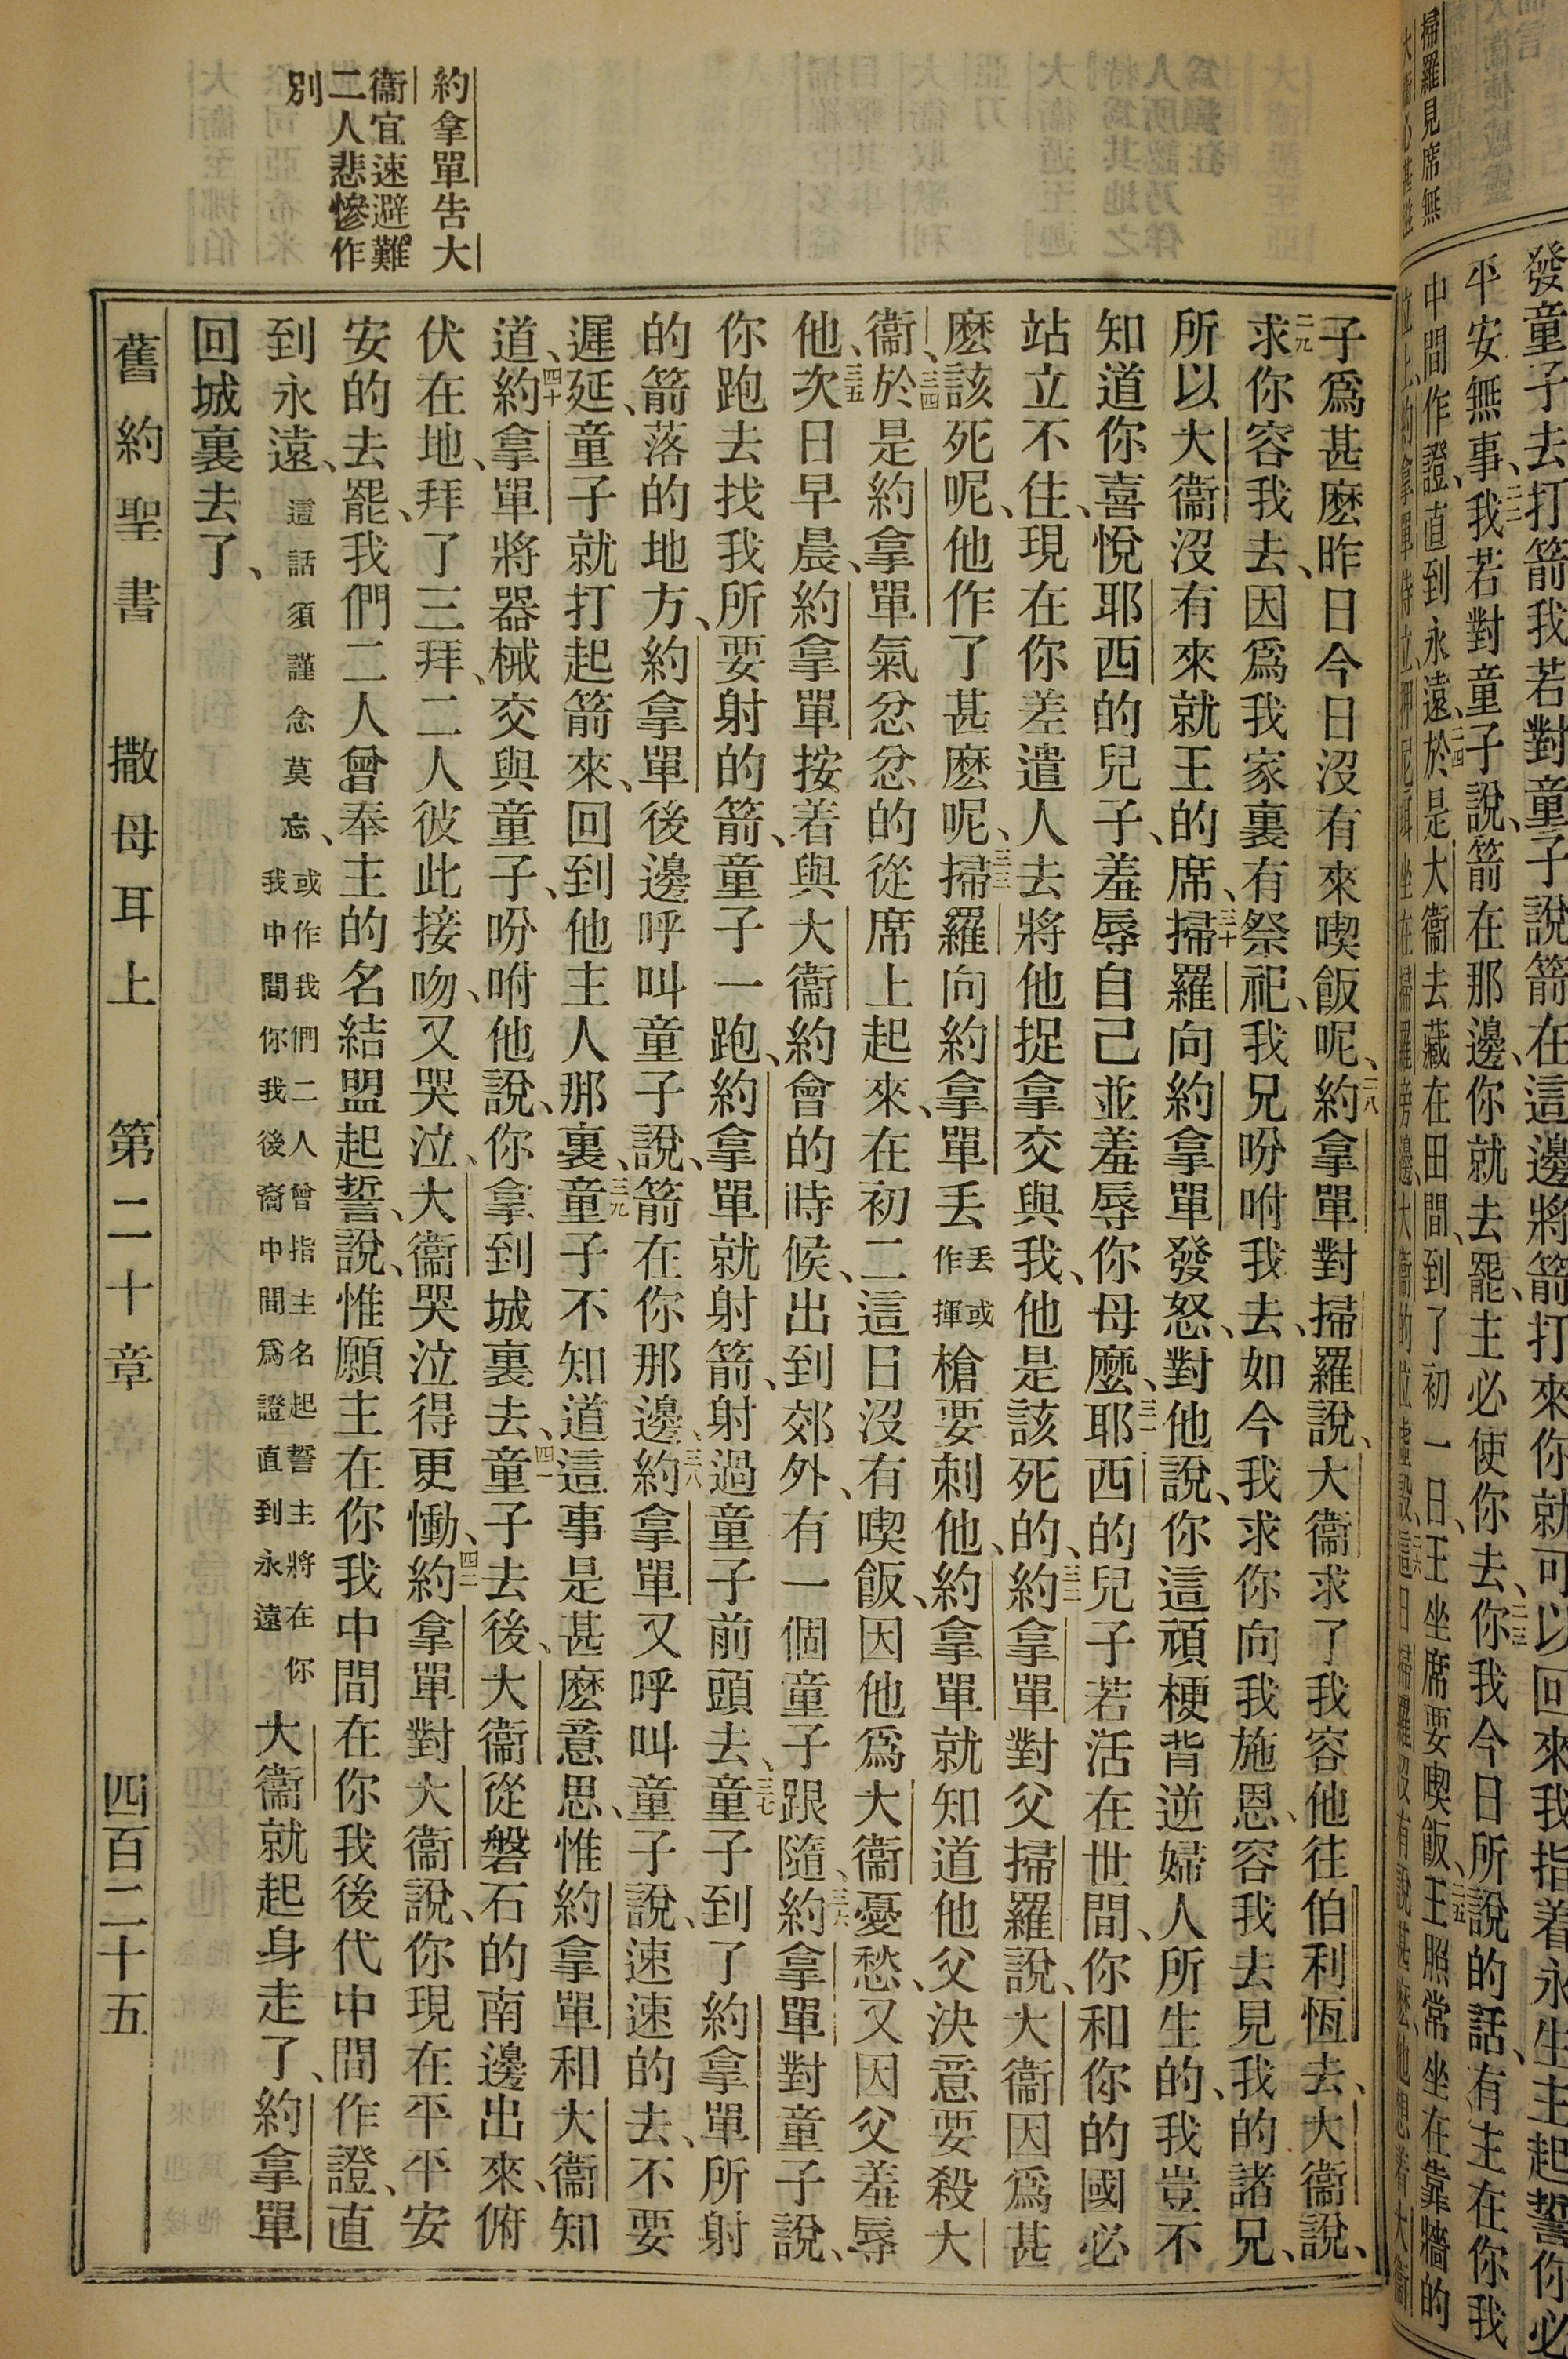 發童子去打箭我若對童子說箭在這邊將箭打來你就可以回來我指着永生主起誓你必
平安無事、二二我若對童子說、箭在那邊、你就去罷、主必使你去、二三你我今日所說的話、有主在你我
中間作證、直到永遠、二四於是大衞去藏在田間、到了初一日、王坐席要喫飯、二五王照常坐在靠牆的
掃羅見席無
約拿單告大
衞宜速避難
二人悲慘作
別
子爲甚麽昨日今日沒有來喫飯呢、二八約拿單對掃羅說、大衞求了我容他往伯利恆去、大衞說、
二九求你容我去、因爲我家裏有祭祀、我兄吩咐我去、如今我求你向我施恩、容我去見我的諸兄、
所以大衞沒有來就王的席、三十掃羅向約拿單發怒、對他說、你這頑梗背逆婦人所生的、我豈不
知道你喜悅耶西的兒子、羞辱自己並羞辱你母麽、三一耶西的兒子若活在世間、你和你的國必
站立不住、現在你差遣人去將他捉拿交與我、他是該死的、三二約拿單對父掃羅說、大衞因爲甚
麽該死呢、他作了甚麽呢、三三掃羅向約拿單丟丟或作揮槍要刺他、約拿單就知道他父決意要殺大
衞、三四於是約拿單氣忿忿的從席上起來、在初二這日沒有喫飯、因他爲大衞憂愁、又因父羞辱
他、三五次日早晨、約拿單按着與大衞約會的時候、出到郊外、有一個童子跟隨、三六約拿單對童子說、
你跑去找我所要射的箭、童子一跑、約拿單就射箭、射過童子前頭去、三七童子到了約拿單所射
的箭落的地方、約拿單後邊呼叫童子說、箭在你那邊、三八約拿單又呼叫童子說、速速的去、不要
遲延、童子就打起箭來、回到他主人那裏、三九童子不知道這事是甚麽意思、惟約拿單和大衞知
道、四十約拿單將器械交與童子、吩咐他說、你拿到城裏去、四一童子去後、大衞從磐石的南邊出來、俯
伏在地、拜了三拜、二人彼此接吻、又哭泣、大衞哭泣得更慟、四二約拿單對大衞說、你現在平平安
安的去罷、我們二人曾奉主的名結盟起誓、說、惟願主在你我中間在你我後代中間作證、直
到永遠、這話須謹念莫忘、或作我們二人曾指主名起誓主將在你我中間你我後裔中間爲證直到永遠大衞就起身走了、約拿單
回城裏去了、
舊約聖書 撒母耳上 第二十章 四百二十五